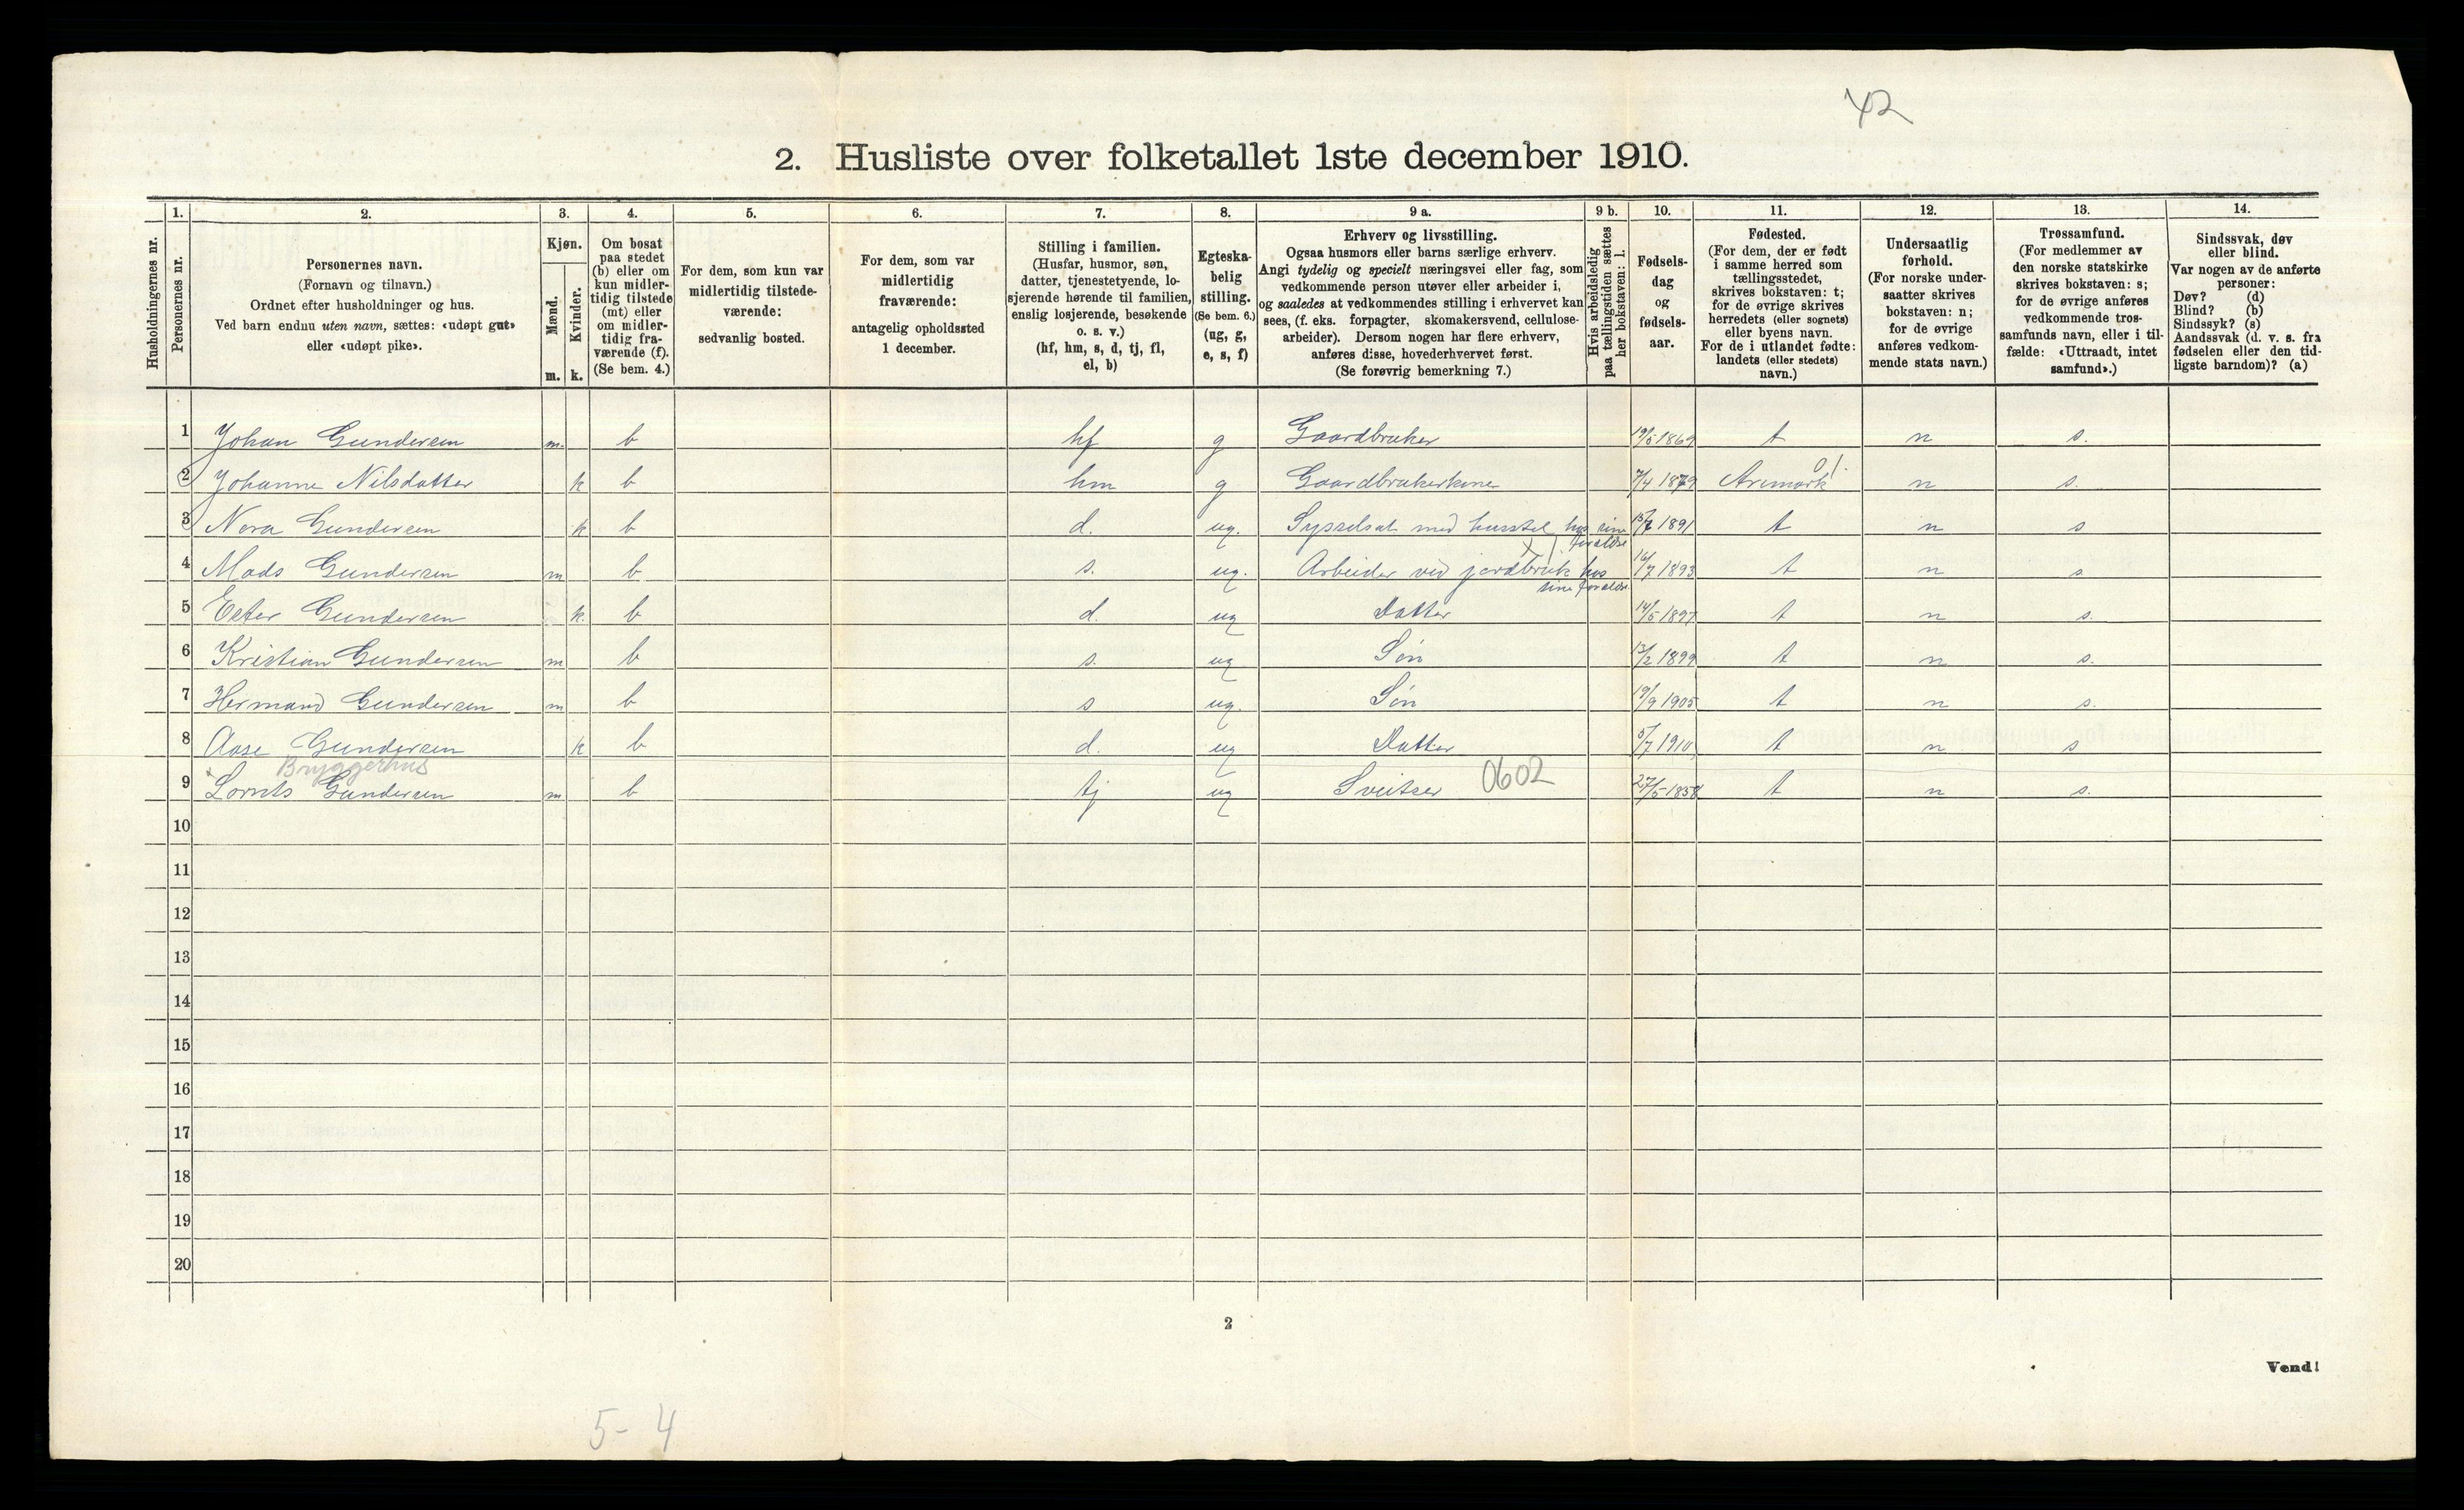 42
2. Husliste over folketallet 1ste december 1910.
Husholdningernes nr.
1. 2. 3. 4. 5. 6. 7. 8. 9 a. 9 b. 10. 11. 12. 13. 14.
Personernes nr.
Personernes navn.
(Fornavn og tilnavn.)
Ordnet efter husholdninger og hus.
Ved barn endnu uten navn, sættes: «udøpt gut»
eller «udøpt pike».
Kjøn.
Mænd.
Kvinder.
m. k.
Om bosat
paa stedet
(b) eller om
kun midler-
tidig tilstede
(mt) eller
om midler-
tidig fra-
værende (f).
(Se bem. 4.)
For dem, som kun var
midlertidig tilstede-
værende:
sedvanlig bosted.
For dem, som var
midlertidig
fraværende:
antagelig opholdssted
1 december.
Stilling i familien.
(Husfar, husmor, søn,
datter, tjenestetyende, lo-
sjerende hørende til familien,
enslig losjerende, besøkende
o. s. v.)
(hf, hm, s, d, tj, fl,
el, b)
Egteska-
belig
stilling.
(Se bem. 6.)
(ug, g,
e, s, f)
Erhverv og livsstilling.
Ogsaa husmors eller barns særlige erhverv.
Angi tydelig og specielt næringsvei eller fag, som
vedkommende person utøver eller arbeider i,
og saaledes at vedkommendes stilling i erhvervet kan
sees, (f. eks. forpagter, skomakersvend, cellulose-
arbeider). Dersom nogen har flere erhverv,
anføres disse, hovederhvervet først.
(Se forøvrig bemerkning 7.)
Hvis arbeidsledig
paa tællingstiden sættes
her bokstaven: l.
Fødsels-
dag
og
fødsels-
aar.
Fødested.
(For dem, der er født
i samme herred som
tællingsstedet,
skrives bokstaven: t;
for de øvrige skrives
herredets (eller sognets)
eller byens navn.
For de i utlandet fødte:
landets (eller stedets)
navn.)
Undersaatlig
forhold.
(For norske under-
saatter skrives
bokstaven: n;
for de øvrige
anføres vedkom-
mende stats navn.)
Trossamfund.
(For medlemmer av
den norske statskirke
skrives bokstaven: s;
for de øvrige anføres
vedkommende tros-
samfunds navn, eller i til-
fælde: «Uttraadt, intet
samfund».)
Sindssvak, døv
eller blind.
Var nogen av de anførte
personer:
Døv? (d)
Blind? (b)
Sindssyk? (s)
Aandssvak (d. v. s. fra
fødselen eller den tid-
ligste barndom)? (a)
1 Johan Gundersen m. b hf g Gaardbruker 19/5 1869 t n s.
2 Johanne Nilsdatter k b hm g Gaardbrukerkone 7/4 1879 Aremark n s.
3 Nora Gundersen k b d. ug. Sysselsat med husstel hos sine 1891 t n s
forældre
4 Mads Gundersen m b s. ug. Arbeider ved jordbruk hos 16/7 1893 t n s
sine forældre
5 Ester Gundersen k. b d. ug Datter 14/5 1897 t n s.
6 Kristian Gundersen m b s. ug Søn 13/2 1899 t n s.
7 Hermand Gundersen m b s ug. Søn 19/9 1905 t n s.
8 Aase Gundersen k b d. ug Datter 5/7 1910 t n s
Bryggerhus
9 Lornts Gundersen m b tj ug Sveitser 0602 27/5-1858 t n s.
10
11
12
13
14
15
16
17
18
19
20
2
Vend!
5-4